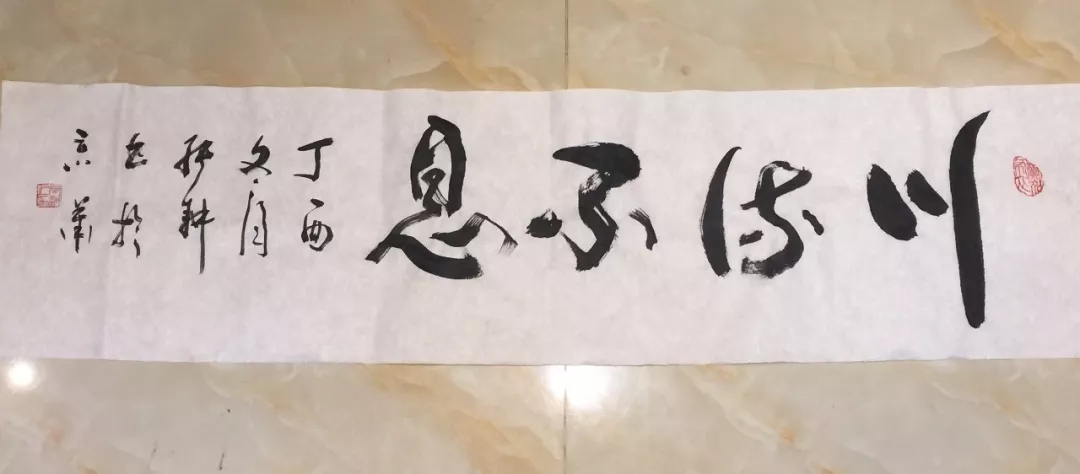 川流不息
丁酉
冬月
耕
於
京華